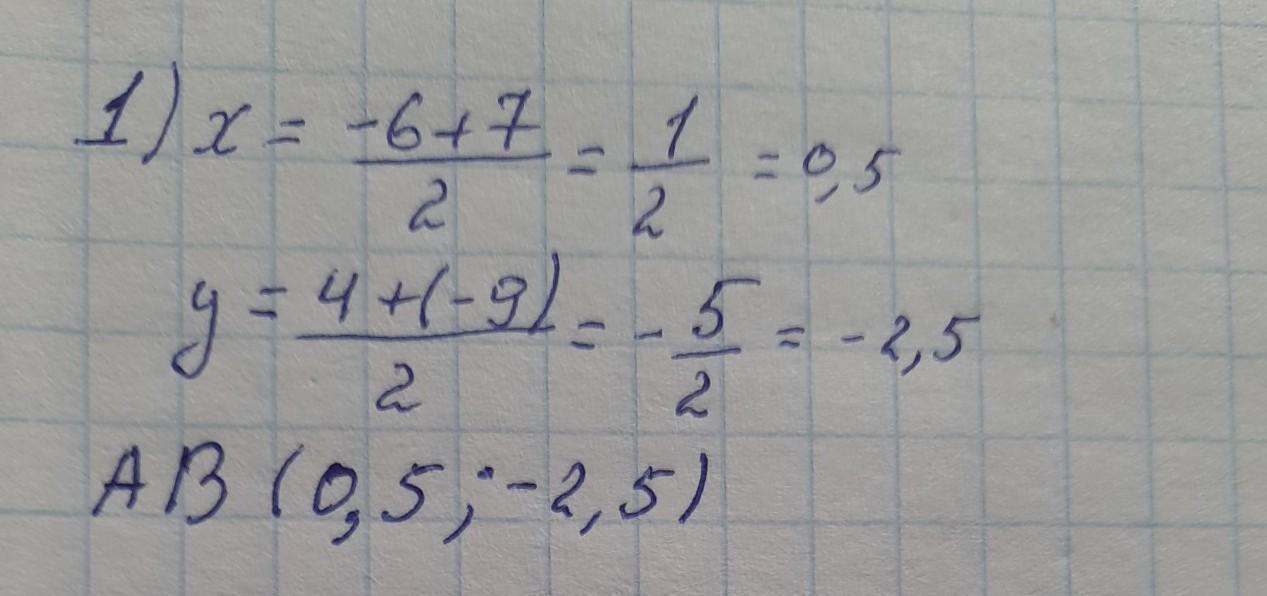 1) x = (-6+7)/2 = 1/2 = 0,5
y = (4+(-9))/2 = -5/2 = -2,5
AB (0,5; -2,5)